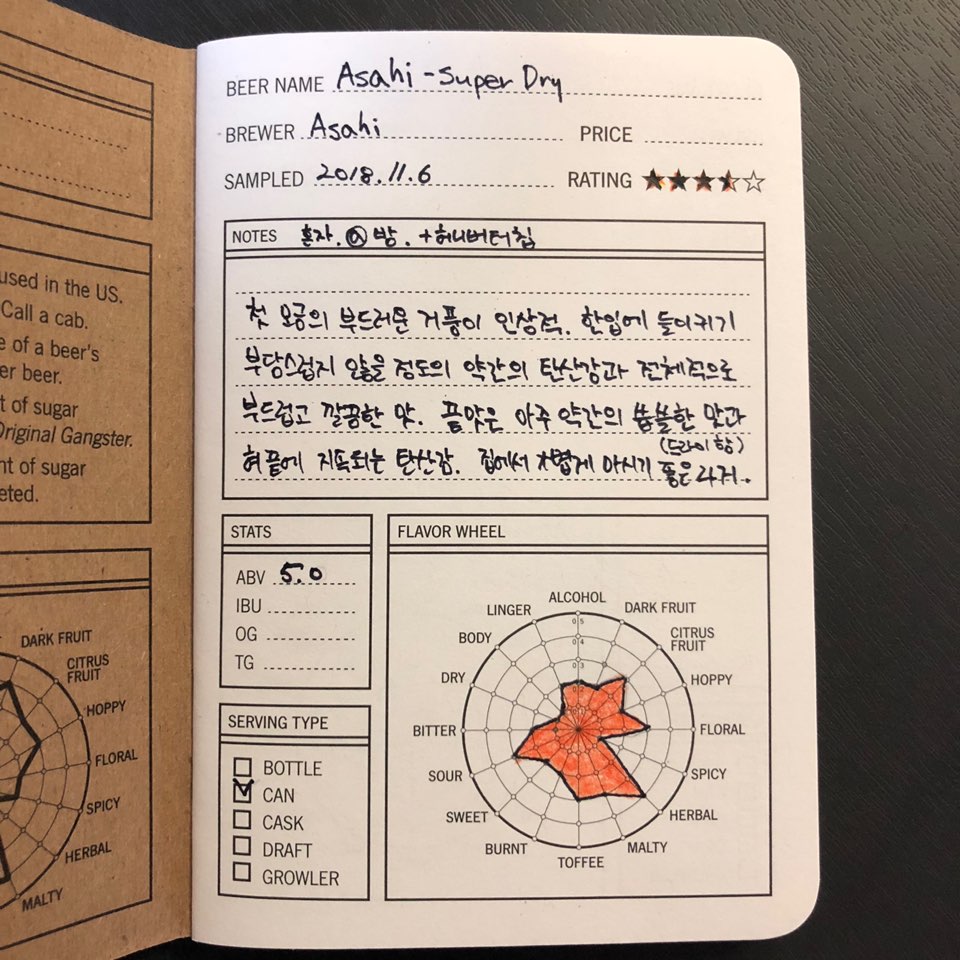 used in the US.
Call a cab.
e of a beer's
er beer.
t of sugar
Original Gangster.
nt of sugar
eted.
DARK FRUIT
CITRUS
FRUIT
HOPPY
FLORAL
SPICY
HERBAL
MALTY
BEER NAME Asahi - Super Dry
BREWER Asahi PRICE
SAMPLED 2018.11.6 RATING
NOTES 혼자. @ 방. + 허니버터칩
첫 모금의 부드러운 거품이 인상적. 한입에 들이키기
부담스럽지 않을 정도의 약간의 탄산감과 전체적으로
부드럽고 깔끔한 맛. 끝맛은 아주 약간의 씁쓸한 맛과
(드라이함)
혀 끝에 지속되는 탄산감. 집에서 가볍게 마시기 좋은 라거.
STATS
ABV 5.0
IBU
OG
TG
SERVING TYPE
BOTTLE
CAN
CASK
DRAFT
GROWLER
FLAVOR WHEEL
ALCOHOL
DARK FRUIT
CITRUS
FRUIT
HOPPY
FLORAL
SPICY
HERBAL
MALTY
TOFFEE
BURNT
SWEET
SOUR
BITTER
DRY
BODY
LINGER
0.5
0.4
0.3
0.2